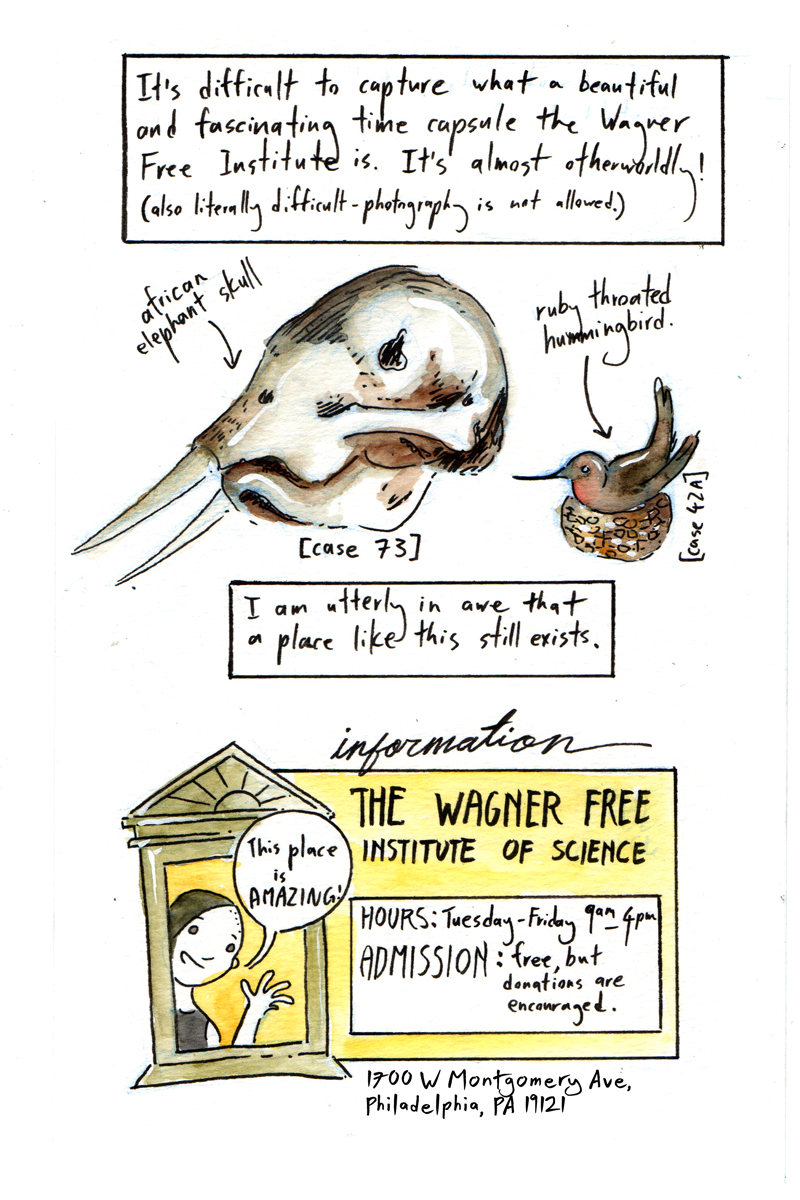 It's difficult to capture what a beautiful
and fascinating time capsule the Wagner
Free Institute is. It's almost otherworldly!
(also literally difficult - photography is not allowed.)
african
elephant skull
ruby throated
hummingbird.
[case 73]
[case 42A]
I am utterly in awe that
a place like this still exists.
information
THE WAGNER FREE
INSTITUTE OF SCIENCE
This place
is
AMAZING!
HOURS: Tuesday-Friday 9am-4pm
ADMISSION: free, but
donations are
encouraged.
1700 W Montgomery Ave,
Philadelphia, PA 19121